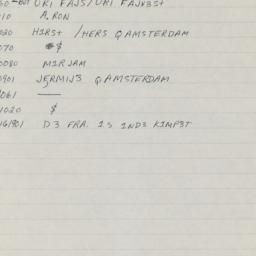 60 - BUT URI FAJS/URI FAJVES+
010 A.RON
0020 HIRS+ /HERS Q AMSTERDAM
070 $
0080 MIRJAM
0901 JERMIJ3 Q AMSTERDAM
1061 —
1020 $
161901 D3 FRA. IS IND3 KIMP3T